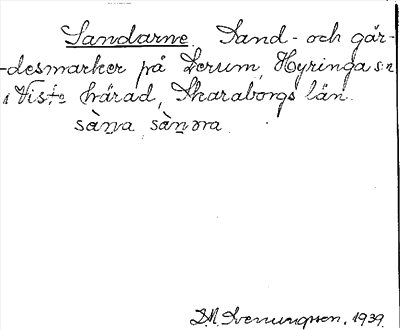 Sandarne. Sand- och går-
-desmarker på Lerum, Hyringa s:n
i Viste härad, Skaraborgs län.
sàna, sànɔra
D.N. Svenungsson. 1939.